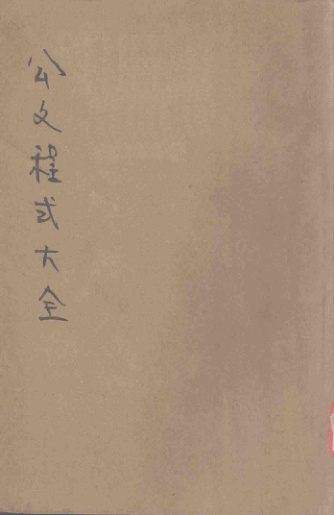 公文程式大全